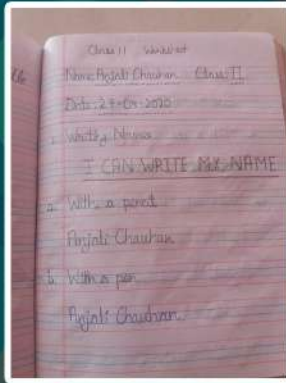 Class II Worksheet
Name: Anjali Chauhan Class: II
Date: 27-04-2020
1. Writing Names
I CAN WRITE MY NAME
a. With a pencil
Anjali Chauhan
b. With a pen
Anjali Chauhan